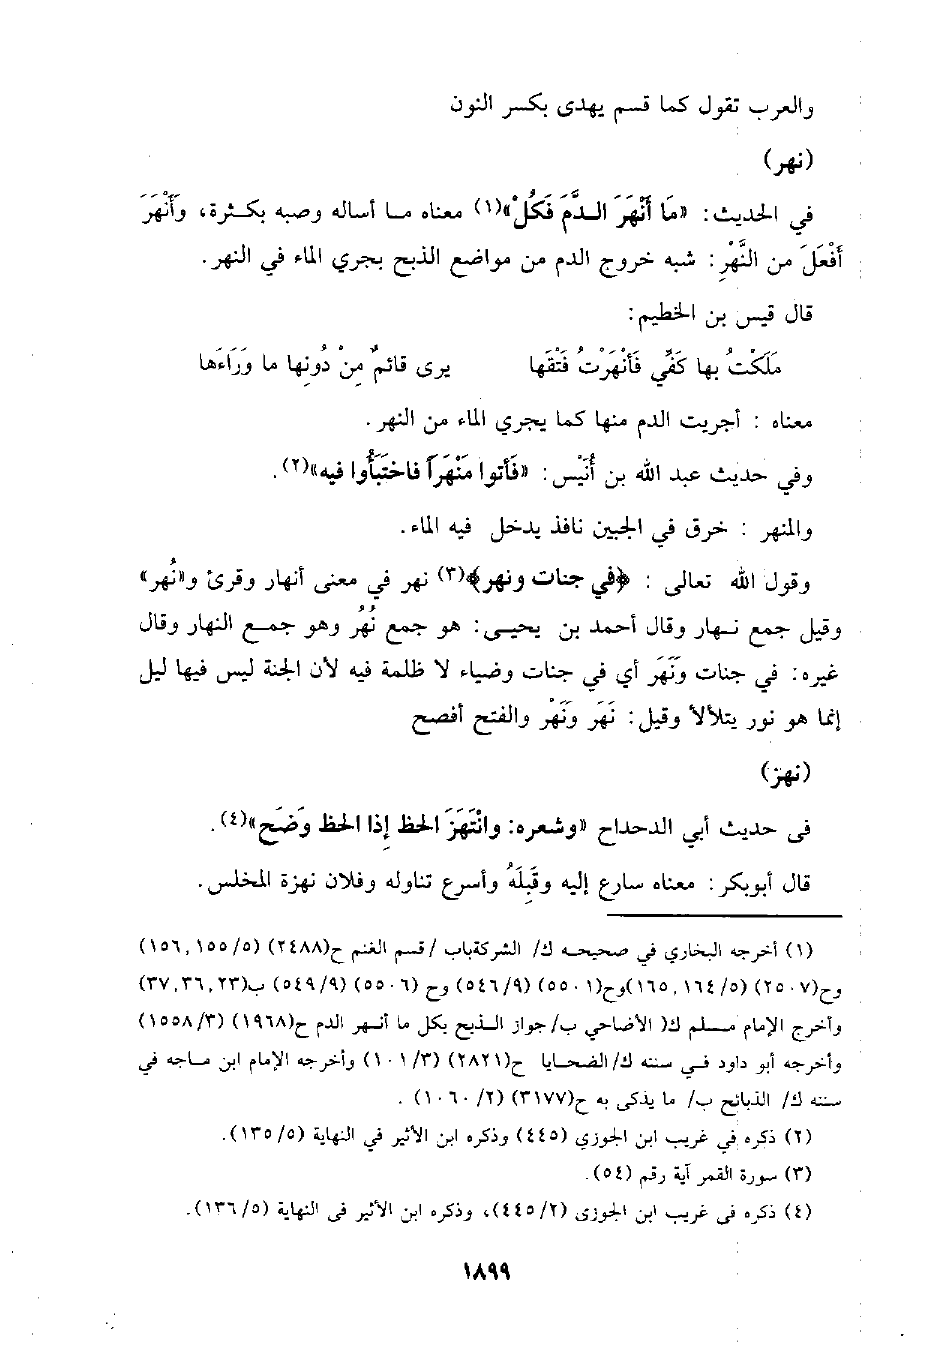 والعرب تقول كما قسم يهدى بكسر النون
(نهر)
في الحديث: «مَا أَنْهَرَ الـدَّمَ فَكُلْ»(١) معناه مـا أساله وصبه بكـثرة، وأَنْهَرَ
أَفْعَلَ من النَّهْرِ: شبه خروج الدم من مواضع الذبح بجري الماء في النهر.
قال قيس بن الخطيم:
مَلَكْتُ بها كَفِّي فَأَنْهَرْتُ فَتْقَها يرى قائمٌ مِنْ دُونِها ما وَرَاءَها
معناه : أجريت الدم منها كما يجري الماء من النهر.
وفي حديث عبد الله بن أُنَيْس: «فَأتوا مَنْهَراً فاخْتَبَأُوا فيه»(٢).
والمنهر : خرق في الجبين نافذ يدخل فيه الماء.
وقول الله تعالى : ﴿في جنات ونهر﴾(٣) نهر في معنى أنهار وقرئ و«نُهر»
وقيل جمع نـهار وقال أحمد بن يحيـى: هو جمع نُهُر وهو جمـع النهار وقال
غيره: في جنات ونَهَر أي في جنات وضياء لا ظلمة فيه لأن الجنة ليس فيها ليل
إنما هو نور يتلألأ وقيل: نَهَر ونَهْر والفتح أفصح
(نهز)
فى حديث أبي الدحداح «وشعره: وانْتَهَزَ الحظ إِذا الحظ وَضَح»(٤).
قال أبوبكر: معناه سارع إليه وقَبِلَهُ وأسرع تناوله وفلان نهزة المخلس.
(١) أخرجه البخاري في صحيحـه ك/ الشركةباب /قسم الغنم ح(٢٤٨٨) (١٥٦,١٥٥/٥)
وح(٢٥٠٧) (١٦٥,١٦٤/٥)وح(٥٥٠١) (٥٤٦/٩) وح (٥٥٠٦) (٥٤٩/٩) ب(٣٧,٣٦,٢٣)
وأخرج الإمام مسـلم ك( الأضاحي ب/جواز الـذبح بكل ما أنـهر الدم ح(١٩٦٨) (١٥٥٨/٣)
وأخرجه أبو داود فـي سننه ك/الضحـايا ح(٢٨٢١) (١٠١/٣) وأخرجه الإمام ابن مـاجه في
سننه ك/ الذبائح ب/ ما يذكى به ح(٣١٧٧) (١٠٦٠/٢) .
(٢) ذكره في غريب ابن الجوزي (٤٤٥) وذكره ابن الأثير في النهاية (١٣٥/٥).
(٣) سورة القمر آية رقم (٥٤).
(٤) ذكره فى غريب ابن الجوزى (٤٤٥/٢)، وذكره ابن الأثير فى النهاية (١٣٦/٥).
١٨٩٩